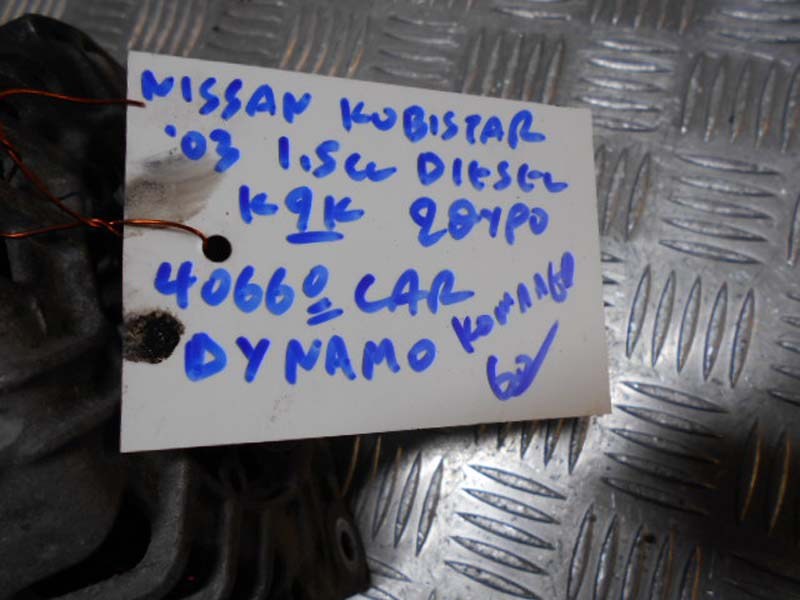 NISSAN KUBISTAR
'03 1.5cc DIESEL
K9K 2θυρο
40660 CAR
DYNAMO
60